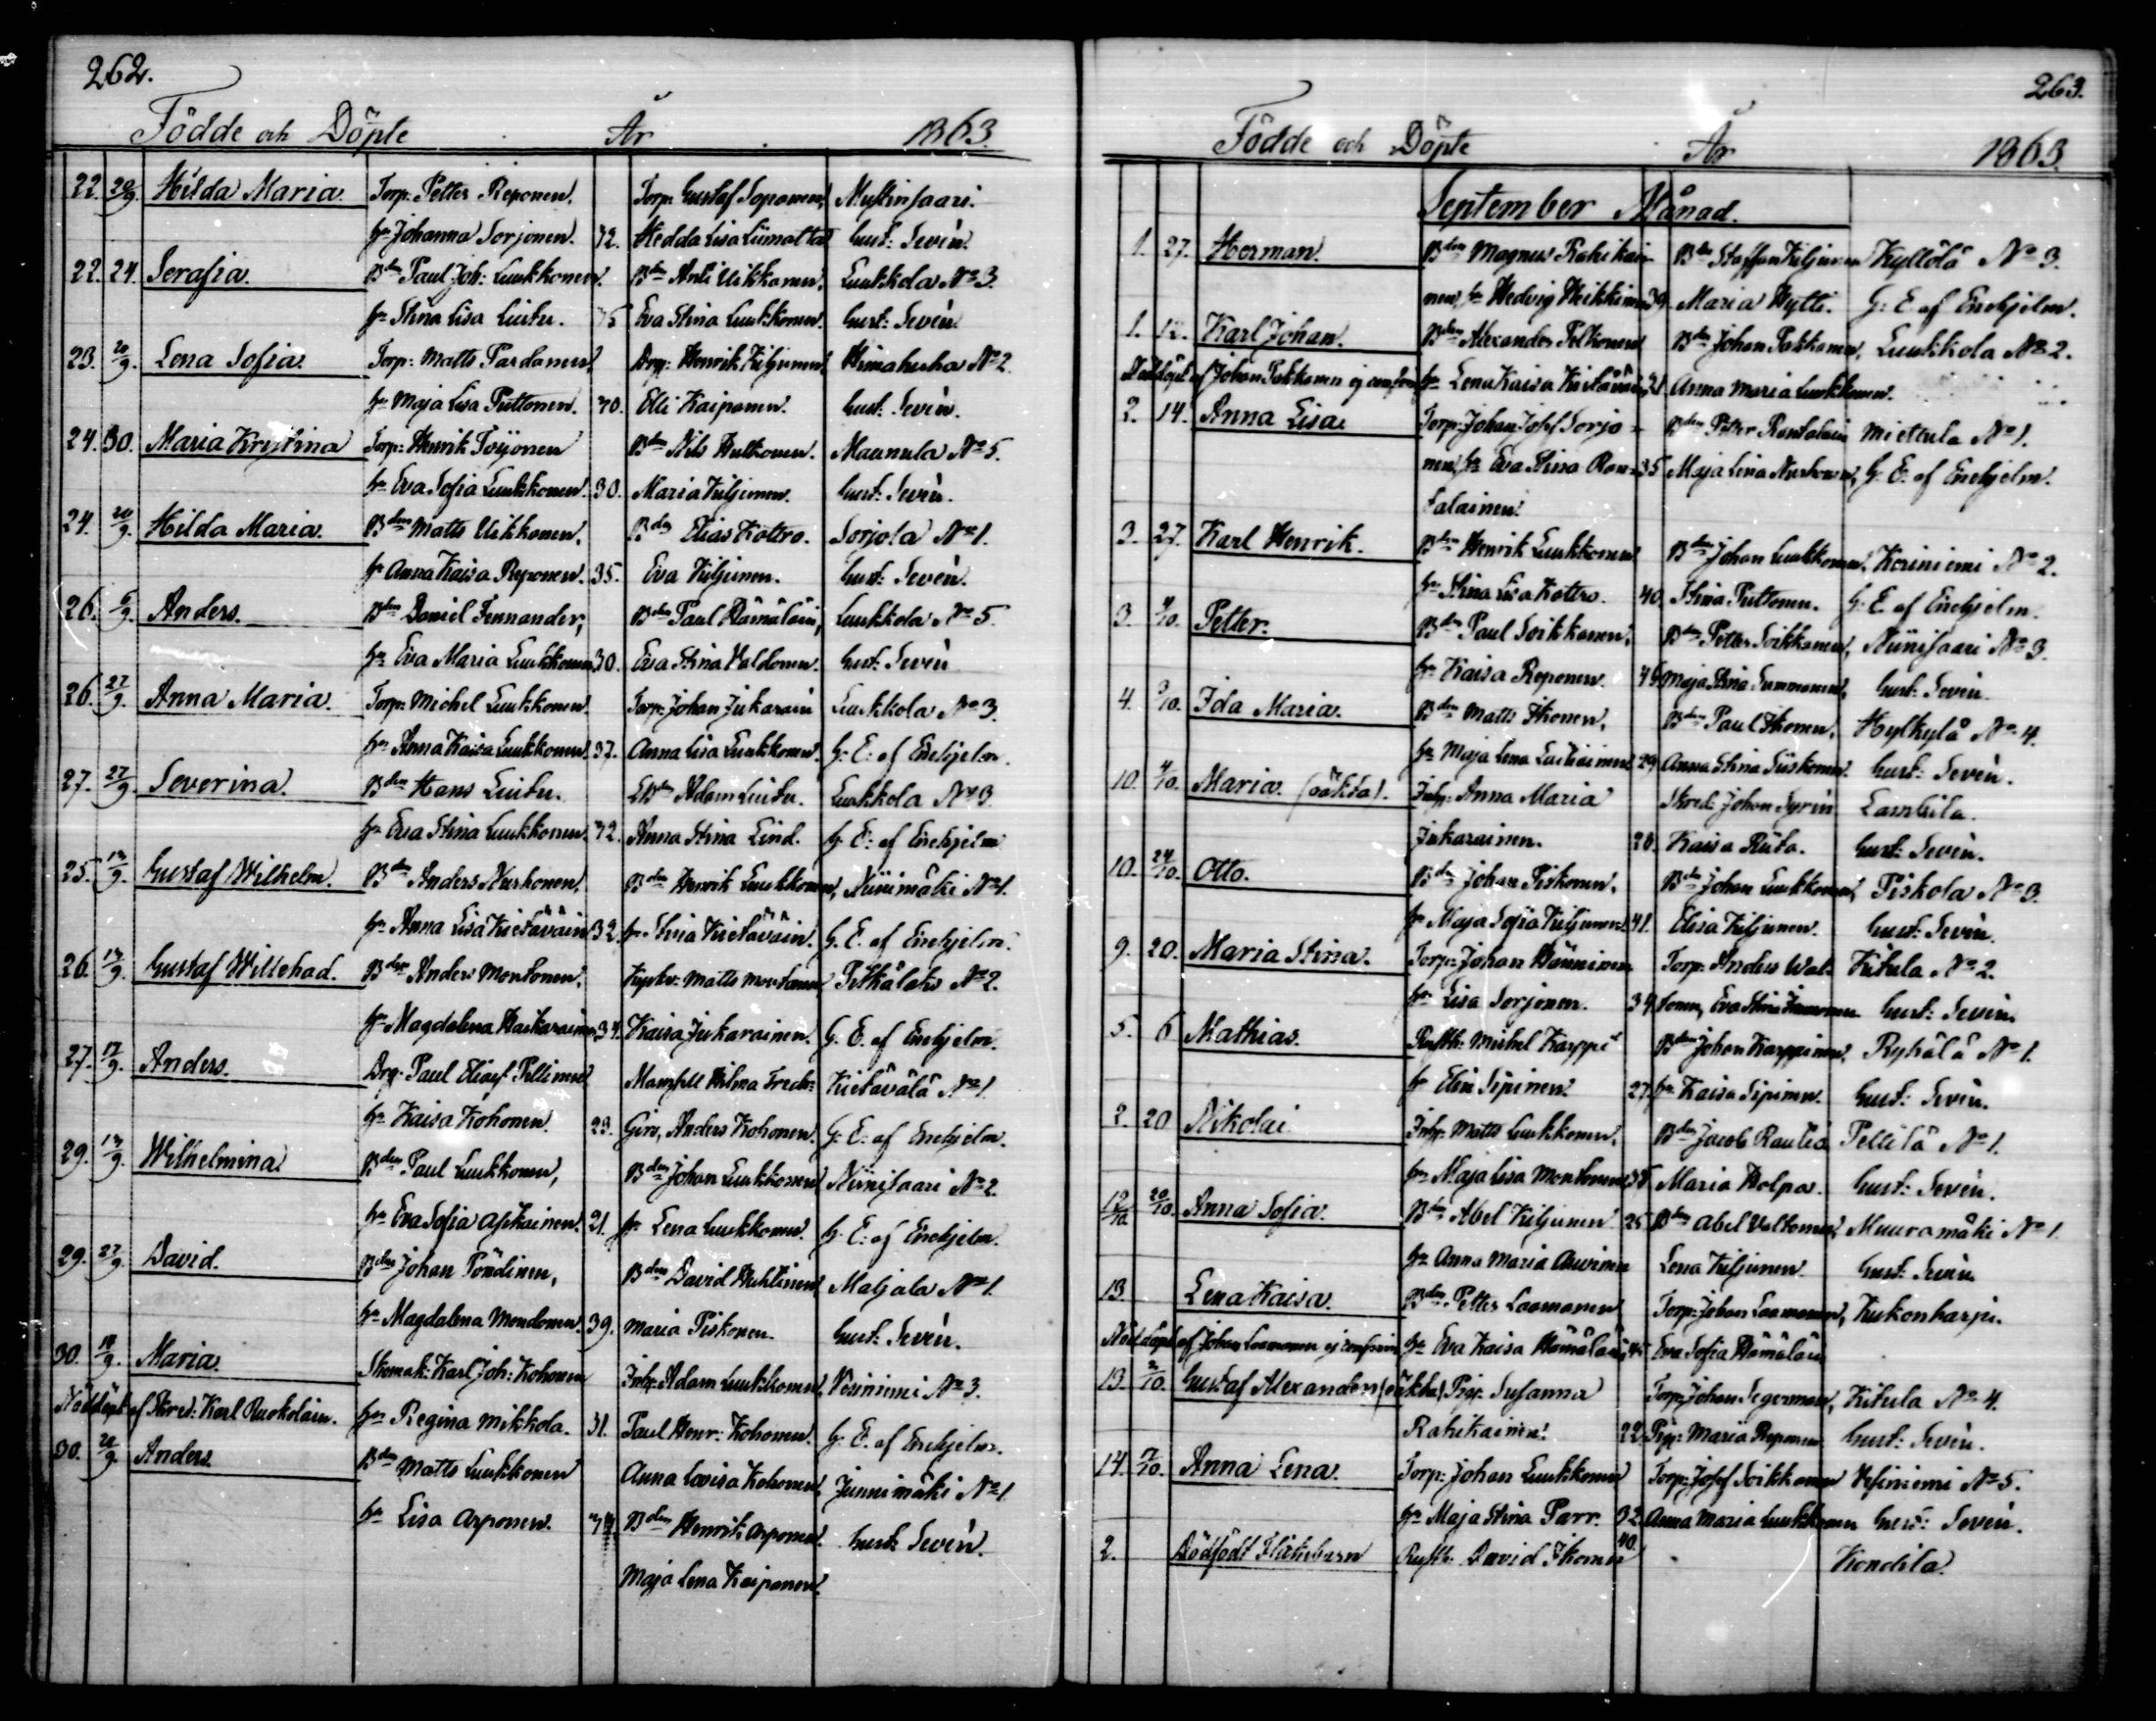 262.
Födde och Döpte År 1863.
22. 20/9. Hilda Maria. Torp: Petter Reponen. Torp: Gustaf Soponen, Mustinsaari.
hu Johanna Sorjonen. 32. Hedda Lisa Liimatta Gust: Sevén.
22. 24. Serafia. Bdn Paul Joh: Luukkonen. Bdn Anti Uikkonen, Luukkola No 3.
hu Stina Lisa Liutu. Eva Stina Luukkonen. Gust: Sevén.
23. 20/9. Lena Sofia. Torp: Matts Pardanen Drg: Henrik Kiljunen No 2.
hu Maja Lisa Puttonen. 30. Elli Kaiponen. Gust: Sevén.
24. 30. Maria Kristina Torp: Henrik Toijonen Bdn Nils Hulkonen. Maunula No 5.
hu Eva Sofia Luukkonen. 30. Maria Kiljunen. Gust: Sevén.
24. 20/9. Hilda Maria. Bdn Matts Uikkonen, Bdn Elias Kottro. Sorjola No 1.
hu Anna Kaisa Reponen. 35. Eva Kiljunen. Gust: Sevén.
26. 6/9. Anders. Bdn Daniel Fennander, Bdn Paul Hämäläin, Luukkola No 5.
hu Eva Maria Luukkonen 30. Eva Stina Valdonen. Gust: Sevén
26. 27/9. Anna Maria. Torp: Michel Luukkonen Torp: Johan Jukarain Luukkola No 3.
hu Anna Kaisa Luukkonen. 37. Anna Lisa Luukkonen. G: E: af Enehjelm.
27. 27/9. Severina. Bdn Hans Liutu. Adam Liutu. Luukkola No 3
hu Eva Stina Luukkonen. 32. Anna Stina Lind. G. E: af Enehjelm
25. 13/9. Gustaf Wilhelm. Bdn Anders Nurhonen, Bdn Henrik Luukkonen, Niinimäki No 1.
hu Anna Lisa Kietäväin 32. hu Stina Kietäväin. G. E. af Enehjelm.
26. 13/9. Gustaf Willehad. Bdn Anders Montonen, Matts Montonen, Pitkälaks No 2.
hu Magdalena Haikarainen 34. Kaisa Jukarainen. G. E. af Enehjelm.
27. 17/9. Anders. Drg: Paul Eliasf. Pellinen Mamsell Hilma Fredr: Kietävälä No 1.
hu Kaisa Kohonen. 23. Girs, Anders Kohonen. G. E: af Enehjelm.
29. 13/9. Wilhelmina. Bdn Paul Luukkonen, Bdn Johan Luukkonen Niinisaari No 2.
hu Eva Sofia Asikainen. 21. hu Lena Luukkonen. G. E: af Enehjelm.
29. 27/9. David. Bdns Johan Pöndinen, Bdn David Huhtinen Maljala No 1.
hu Magdalena Mondonen. 39. Maria Piskonen. Gust: Sevén.
30. 18/9. Maria. Skomak: Karl Joh: Kohonen Inhy: Adam Luukkonen Vesiniemi No 3.
Nöddöpt af Skred: Karl Ruokolain. hu Regina Mikkola. 31. Paul Henr: Kohonen. G. E. af Enehjelm.
30. 20/9. Anders. Bdn Matts Luukkonen Anna Lovisa Kohonen, Junnimäki No 1.
hu Lisa Arponen. Bdn Henrik Arponen. Gust: Sevén.
Maja Lena Kaiponen.
263.
Födde och Döpte År 1863.
September Månad.
1. 27. Herman. Bdn Magnus Rahikai- Bdn Staffan Kiljunen Kyllölä No 3.
nen, hu Hedvig Heikkinen 39. Maria Hytti. G: E. af Enehjelm.
1. 12. Karl Johan. Bdn Alexander Pelkonen Bdn Johan Pakkanen, Luukkola No 2.
Nöddöpt af Johan Pakkanen ej hu Lena Kaisa Kietäväin 31. Anna Maria Luukkonen.
2. 14. Anna Lisa. Torp: Johan Josef Sorjo- Bdn Petter Rantalain Miettula No 1.
nen, hu Eva Stina Ran- 35. Maja Lena Nurhonen, G: E: af Enehjelm.
talainen.
3. 27. Karl Henrik. Bdn Henrik Luukkonen Bdn Johan Luukkonen, No 2.
hu Stina Lisa Kottro. 40. Stina Puttonen. G: E. af Enehjelm.
3. 4/10. Petter. Bdn Paul Soikkonen, Bdn Petter Soikkonen, Niinisaari No 3.
hu Kaisa Reponen. Maja Stina Summanen, Gust: Sevén.
4. 3/10. Ida Maria. Bdn Matts Ikonen, Bdn Paul Ikonen, Hylkylä No 4.
hu Maja Lena Laihiainen 29. Anna Stina Siiskonen. Gust: Sevén.
10. 4/10. Maria (oäkta). Inhy: Anna Maria Skred: Johan Syrén Lambila.
Jukarainen. 28. Kaisa Ruta. Gust: Sevén.
10. 24/10. Otto. Bdn Johan Piskonen, Bdn Johan Luukkonen, Piskola No 3.
hu Maja Sofia Kiljunen 41. Elisa Kiljunen. Gust: Sevén.
9. 20. Maria Stina. Torp: Johan Hänninen Torp: Anders Wal- Kitula No 2.
hu Lisa Sorjonen. 34. tonen, Eva Stina Gust: Sevén.
5. 6 Mathias. Rusth: Michel Karppi Bdn Johan Karppinen, Ryhälä No 1.
hu Elin Sipinen. 27. hu Kaisa Sipinen. Gust: Sevén.
2. 20 Nikolai. Inhy: Matts Luukkonen, Bdn Jacob Rautio Pellilä No 1.
hu Maja Lisa Montonen 38. Maria Holpa. Gust: Sevén.
12/10. 20/10. Anna Sofia. Bdn Abel Kiljunen 25 Bdn Abel Valtonen, Muuramäki No 1.
hu Anna Maria Auvinen Lena Kiljunen. Gust: Sevén
13. Lena Kaisa. Bdn Petter Laamanen Torp: Johan Laamanen, Kukonharju.
Nöddöpt af Johan Laamanen ej hu Eva Kaisa Hämäläin 45 Eva Sofia Hämäläin
13. 2/10. Gustaf Alexander (oäkta) Pig: Susanna Torp: Johan Segerman, Kitula No 4.
Rahikainen. 22. Pig: Maria Reponen Gust: Sevén.
14. 7/10. Anna Lena. Torp: Johan Luukkonen Torp: Josef Soikkonen Vesiniemi No 5.
hu Maja Stina Parr. 32. Anna Maria Luukkonen Gust: Sevén.
2. Dödfödt Flickebarn Rusth: David Ikonen 40. Kondila.